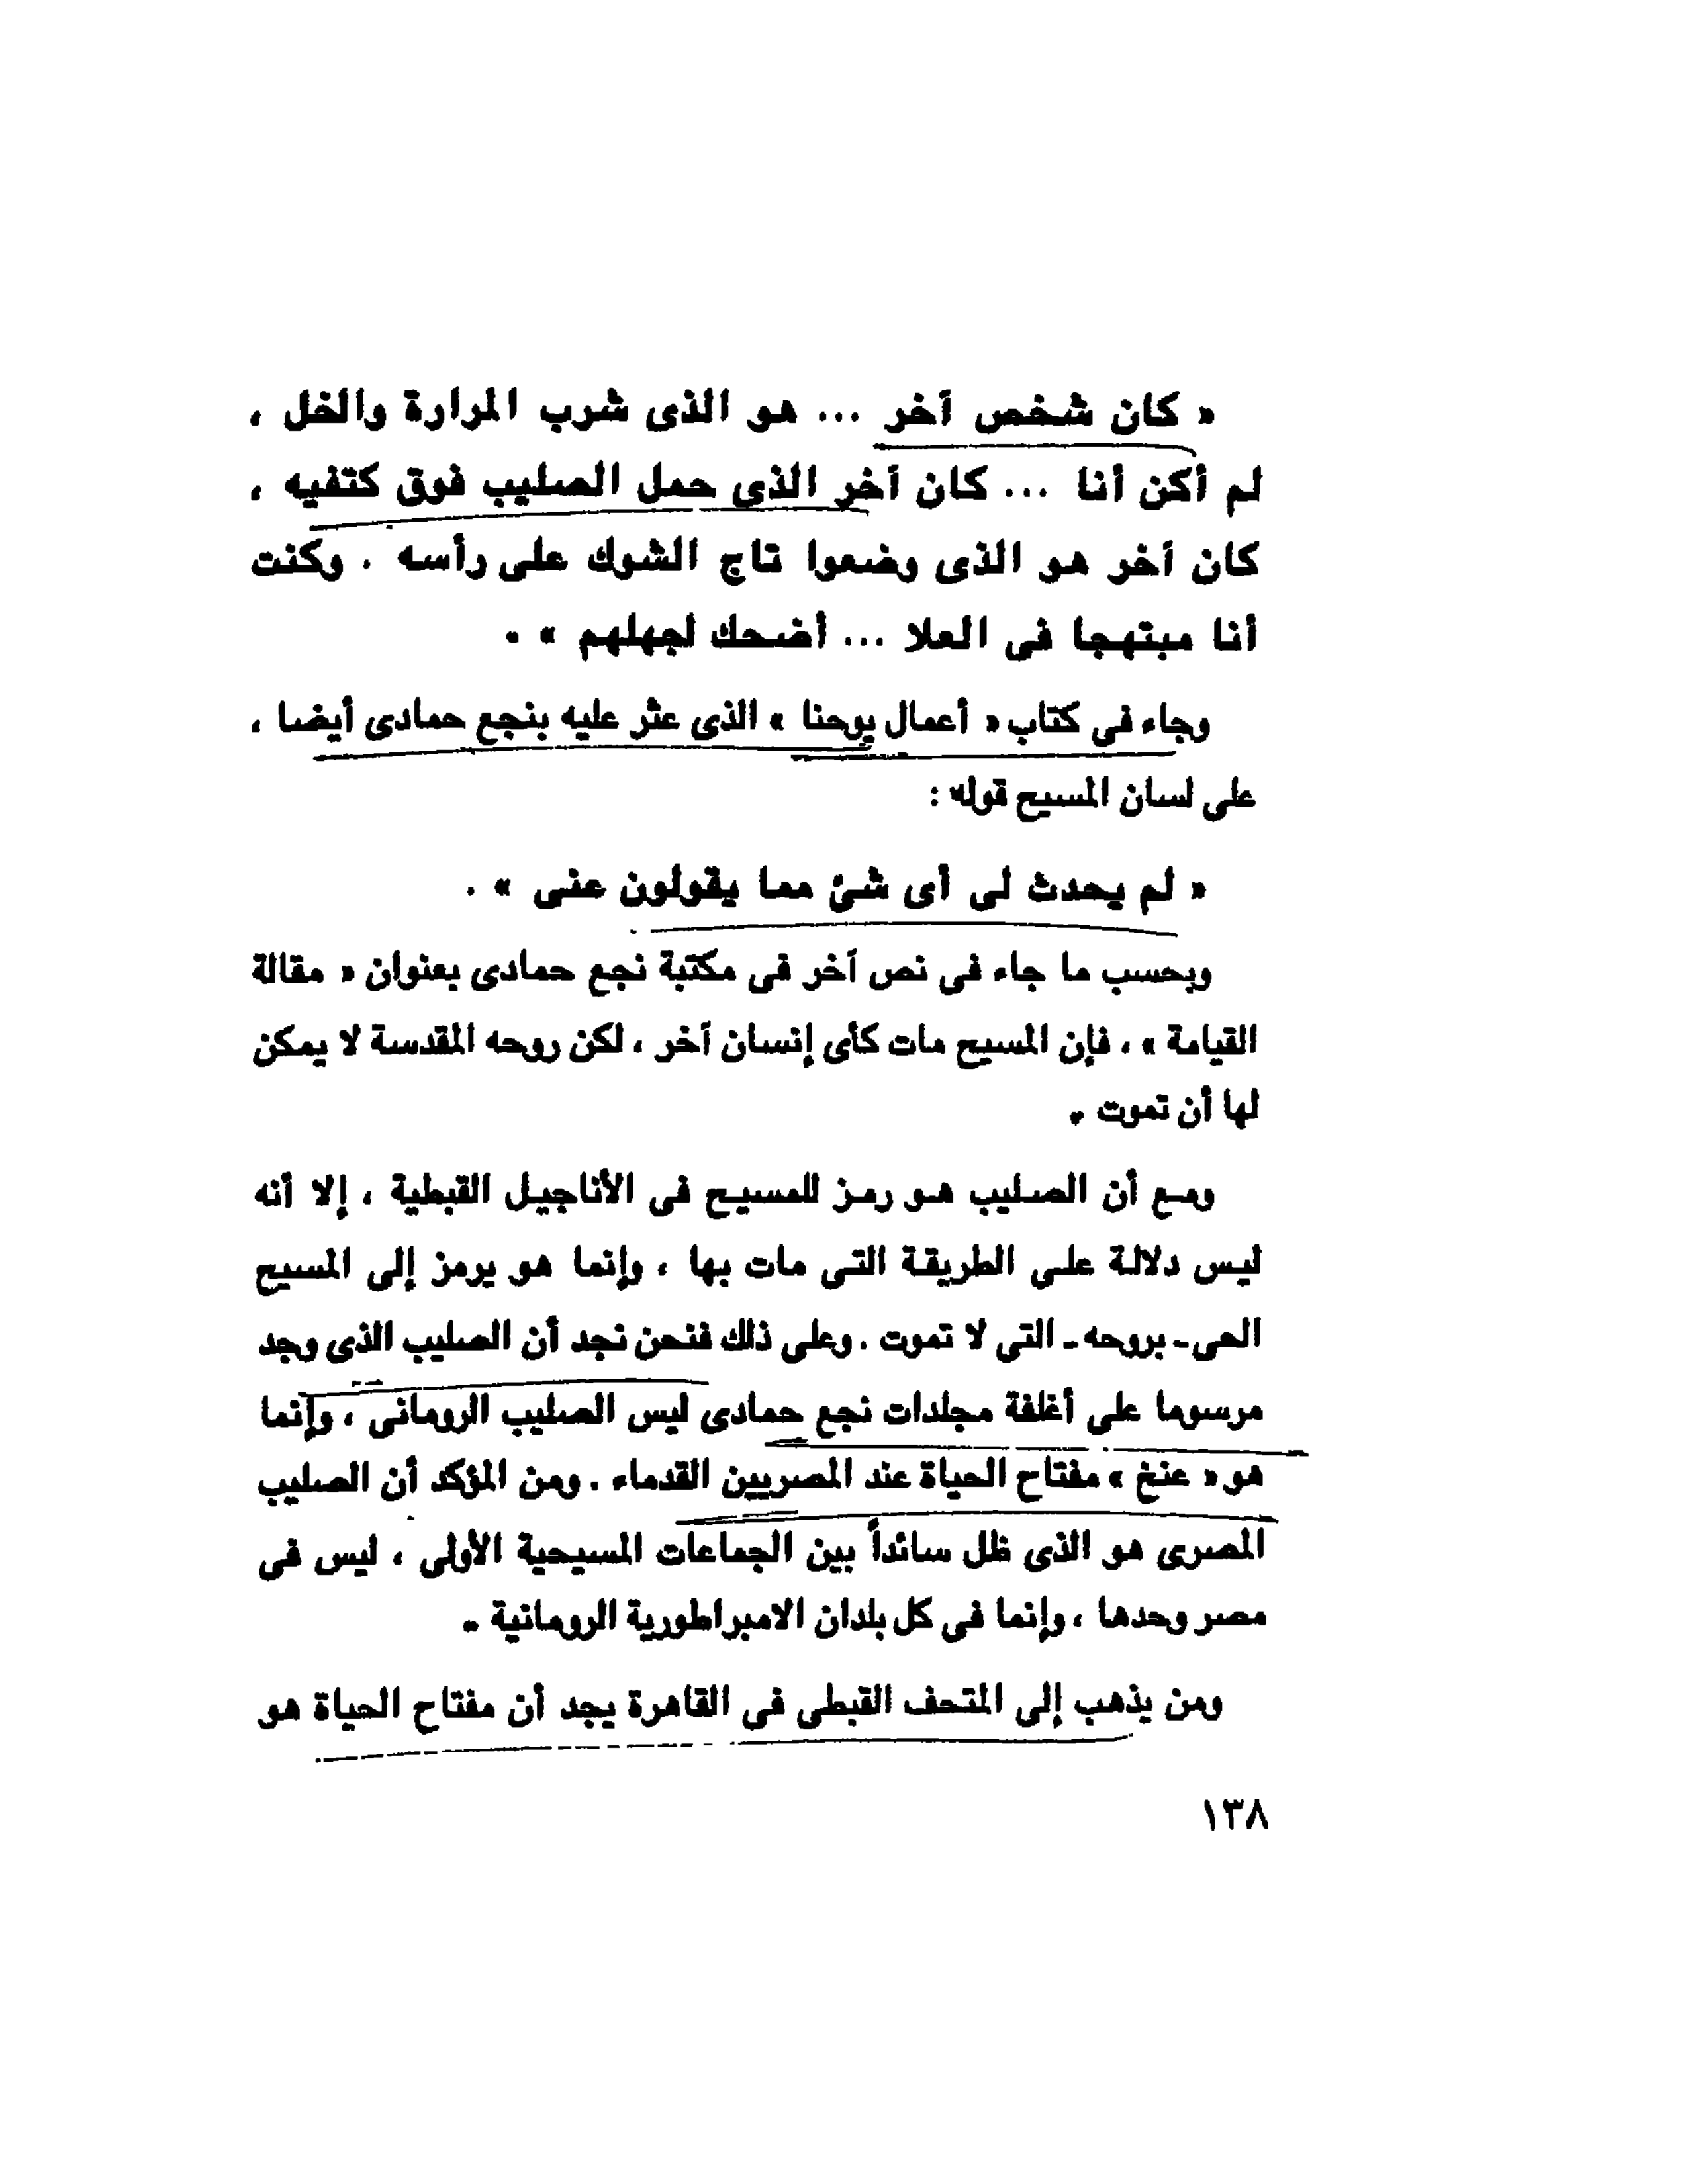 « كان شخص آخر ... هو الذى شرب المرارة والخل ،
لم أكن أنا ... كان آخر الذى حمل الصليب فوق كتفيه ،
كان آخر هو الذى وضعوا تاج الشوك على رأسه . وكنت
أنا مبتهجا فى العلا ... أضحك لجهلهم » .
وجاء فى كتاب « أعمال يوحنا » الذى عثر عليه بنجع حمادى أيضا ،
على لسان المسيح قوله :
« لم يحدث لى أى شئ مما يقولون عنى » .
وبحسب ما جاء فى نص آخر فى مكتبة نجع حمادى بعنوان « مقالة
القيامة » ، فإن المسيح مات كأى إنسان آخر ، لكن روحه المقدسة لا يمكن
لها أن تموت .
ومع أن الصليب هو رمز للمسيح فى الأناجيل القبطية ، إلا أنه
ليس دلالة على الطريقة التى مات بها ، وإنما هو يرمز إلى المسيح
الحى ـ بروحه ـ التى لا تموت . وعلى ذلك فنحن نجد أن الصليب الذى وجد
مرسوما على أغلفة مجلدات نجع حمادى ليس الصليب الرومانى ، وإنما
هو « عنخ » مفتاح الحياة عند المصريين القدماء . ومن المؤكد أن الصليب
المصرى هو الذى ظل سائداً بين الجماعات المسيحية الأولى ، ليس فى
مصر وحدها ، وإنما فى كل بلدان الامبراطورية الرومانية .
ومن يذهب إلى المتحف القبطى فى القاهرة يجد أن مفتاح الحياة هو
١٣٨